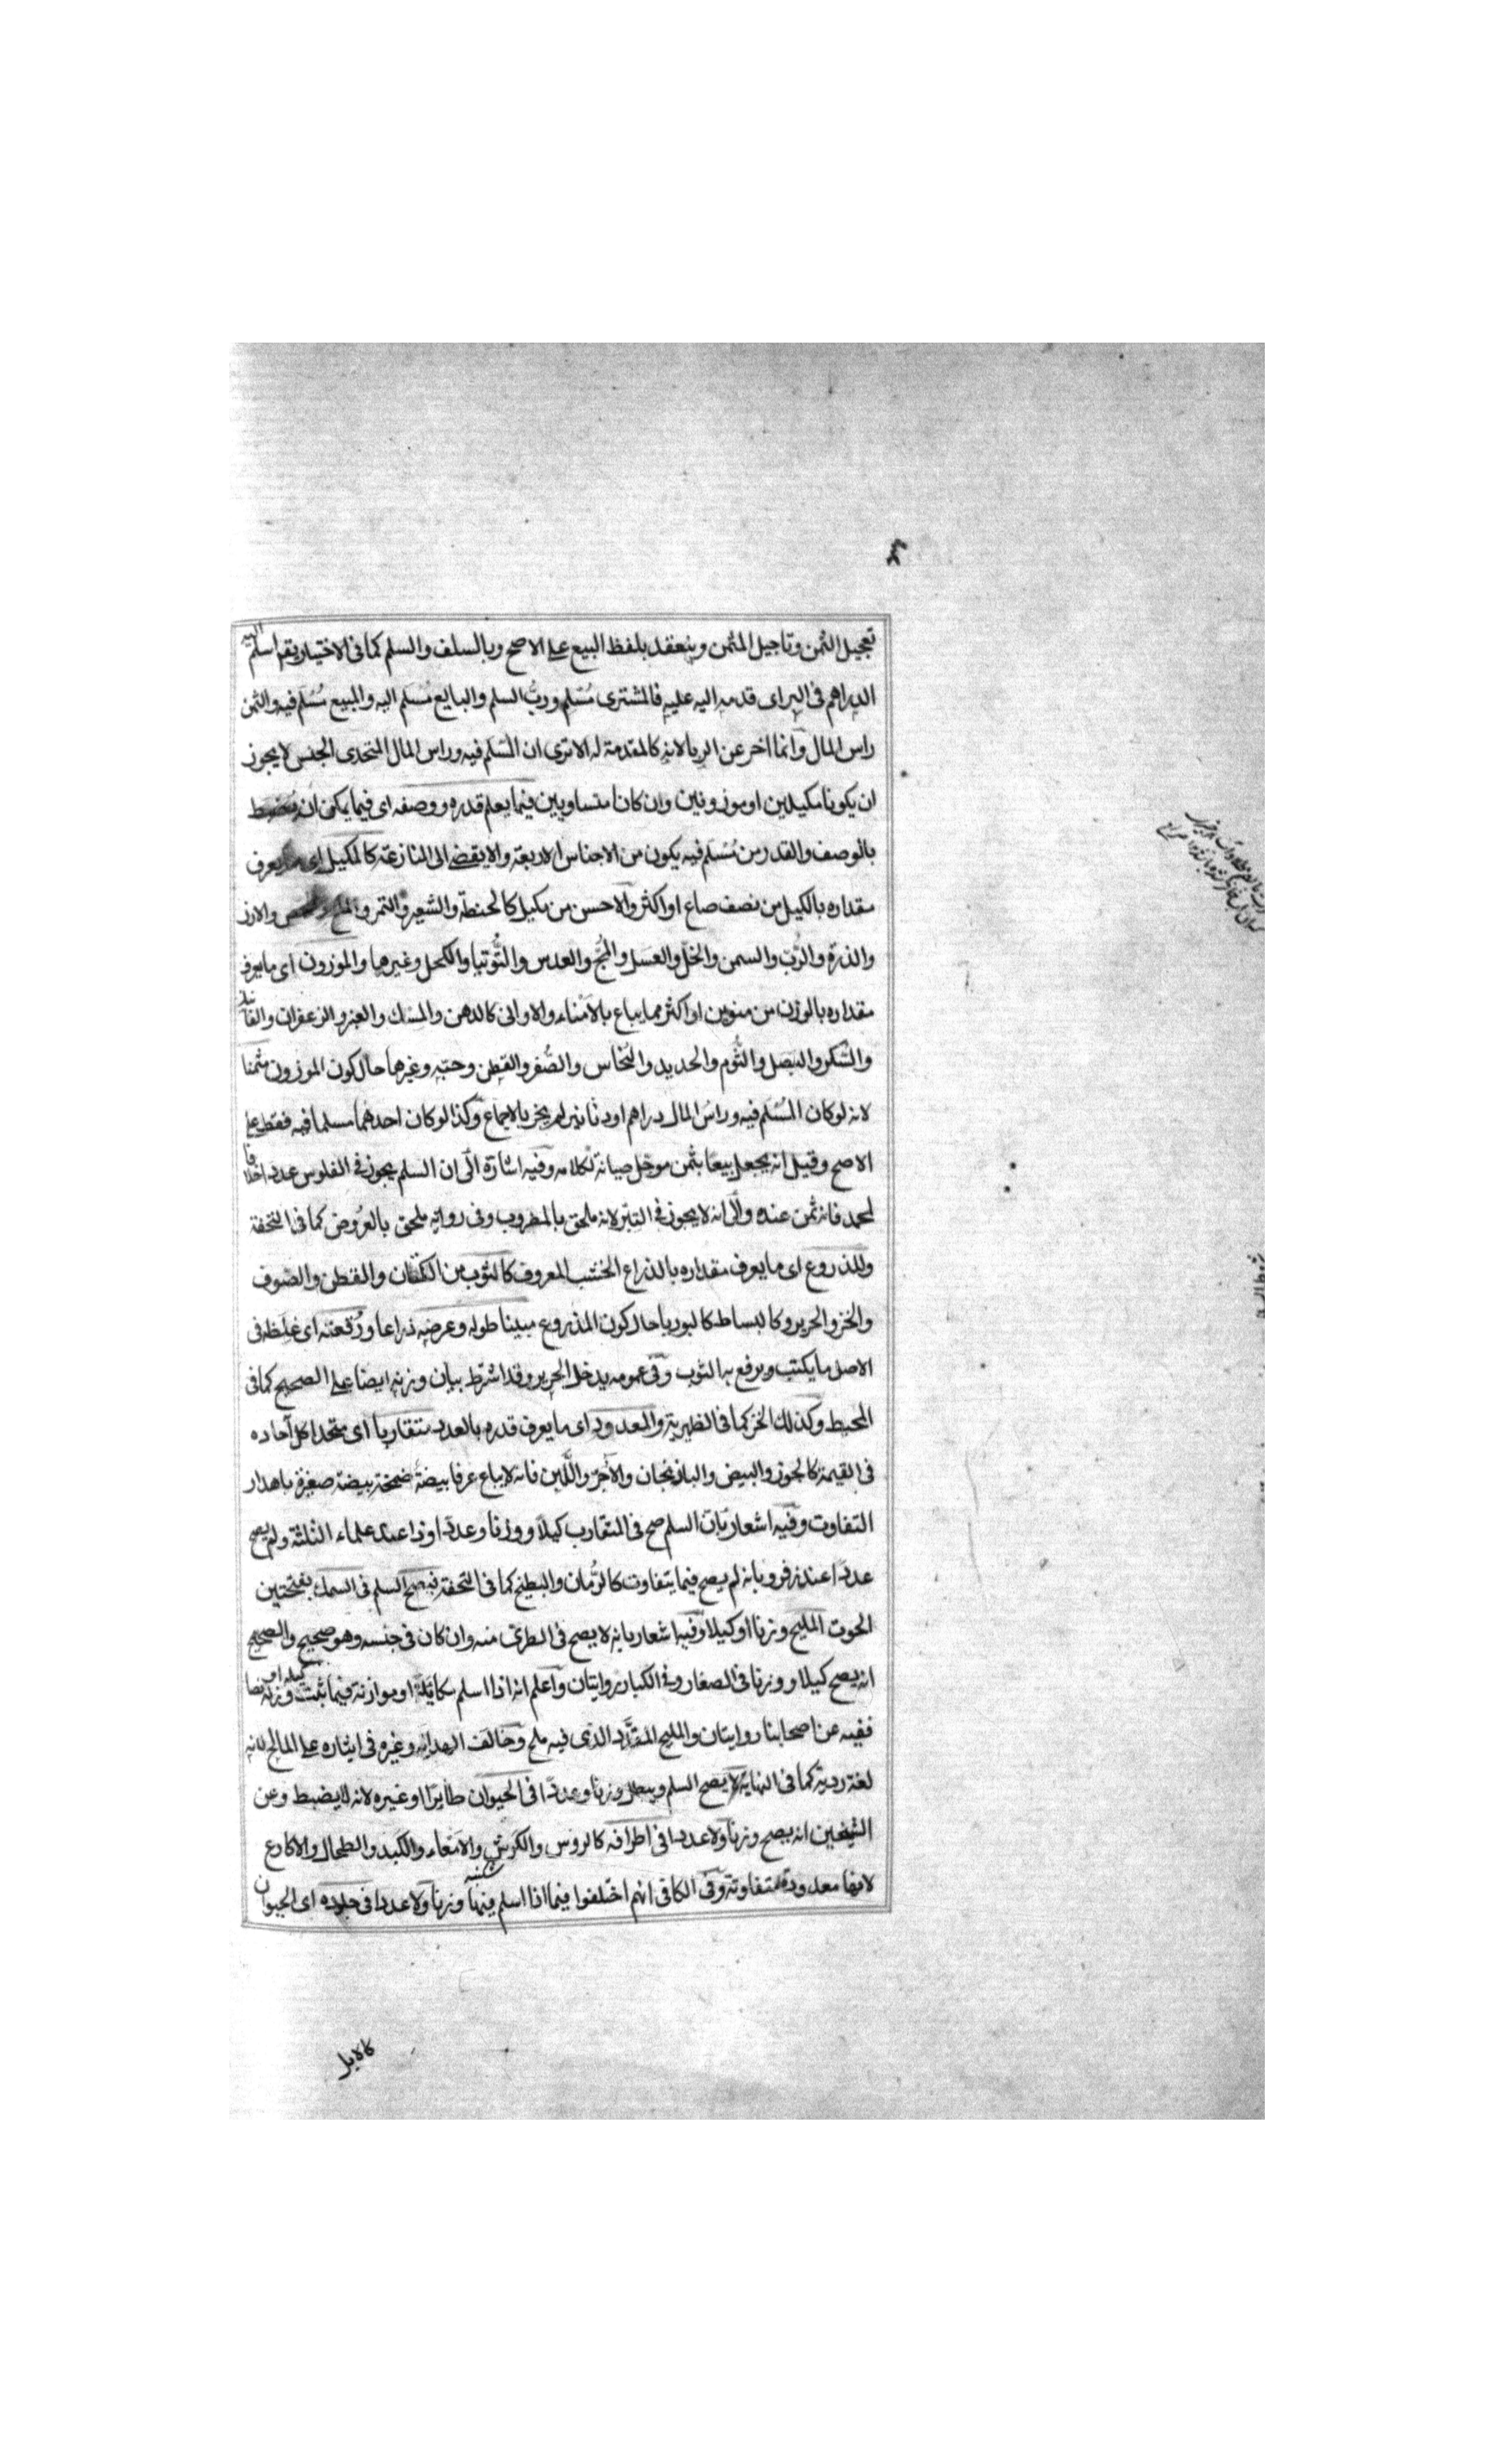 تعجيل الثمن وتاجيل المثمن وينعقد بلفظ البيع على الاصح وبالسلف والسلم كما فى الاختيار يقم اسلم اليه
الدراهم فى البر اى قدمه اليه عليه فالمشترى مُسْلِم وربُّ السلم والبايع مُسْلَم اليه والمبيع مُسْلَم فيه والثمن
راس المال وانما اخر عن الربا لانه كالمقدمة له الا ترى ان المُسْلَم فيه وراس المال المتحدى الجنس لا يجوز
ان يكونا مكيلين او موزونين وان كانا متساويين فيما يعلم قدره ووصفه اى فيما يمكن ان يضبط
بالوصف والقدر من مُسْلَم فيه يكون من الاجناس الاربعة والا يفضى الى المنازعة كالمكيل اى ما يعرف
مقداره بالكيل من نصف صاع او اكثر والاحسن من مكيل كالحنطة والشعير والتمر والارز
والذرة والرُّبّ والسمن والخلّ والعسل والمُجّ والعدس والتُّوتيا والكحل وغيرها والموزون اى ما يعرف
مقداره بالوزن من منوين او اكثر مما يباع بالامْناء والاوانى كالدهن والمسك والعنبر والزعفران والفانيذ
والسُّكر والبَصَل والثُّوم والحديد والنُّحاس والصُّفر والقطن وحبّه وغيرها حال كون الموزون مثمنا
لانه لو كان المُسْلَم فيه وراس المال دراهم او دنانير لم يجز بالاجماع وكذا لو كان احدهما مسلما فيه فقط على
الاصح وقيل انه يجعل بيعًا بثمن موجل صيانة لكلامه وفيه اشارة الى ان السلم يجوز فى الفلوس عددا خلافا
لمحمد فانه ثمن عنده والى انه لا يجوز فى التبر لانه ملحق بالمضروب وفى رواية ملحق بالعُرُوض كما فى التحفة
والمذروع اى ما يعرف مقداره بالذراع الخشب المعروف كالثوب من الكتان والقطن والصُوف
والخز والحرير وكالبساط كالبوريا حال كون المذروع مبينا طوله وعرضه ذراعا ورُقعته اى غلظه فى
الاصل ما يكتب ويرفع به الثوب وفى عمومه يدخل الحرير وقد اشترط بيان وزنه ايضا على الصحيح كما فى
المحيط وكذلك الخز كما فى الظهيرية والمعدود اى ما يعرف قدره بالعدد متقاربا اى متحدا كل آحاده
فى القيمة كالجوز والبيض والباذنجان والآجر واللَّبِن فانه لا يباع عرفا بيضة ضخمة ببيضة صغيرة باهدار
التفاوت وفيه اشعار بان السلم صح فى المتقارب كيلا ووزنا وعددا وذا عند علماء الثلثة ولم يصح
عددا عند زفر وبانه لم يصح فيما يتفاوت كالرُّمان والبطيخ كما فى التحفة فيصح السلم فى السمك بفتحتين
الحوت المليح وزنا او كيلا وفيه اشعار بانه لا يصح فى الطرىّ منه وان كان فى جنسه وهو صحيح والصحيح
انه يصح كيلا ووزنا فى الصغار وفى الكبار روايتان واعلم انه اذا اسلم مكايلة او موازنة فيما ثبت كيله او وزنه نصا
ففيه عن اصحابنا روايتان والمليح المقدَّد الذى فيه ملح وخالف الهداية وغيره فى ايثاره على المالح لانه
لغة ردية كما فى النهاية لا يصح السلم ويبطل وزنا وعددا فى الحيوان طايرا او غيره لانه لا يضبط وعن
الشيخين انه يصح وزنا ولا عددا فى اطرافه كالروس والكرش والامعاء والكبد والطحال والاكارع
لانها معدودة متفاوتة وفى الكافى انهم اختلفوا فيما اذا اسلم فيها وزنا ولا عددا فى جلوده اى الحيوان
كالابل